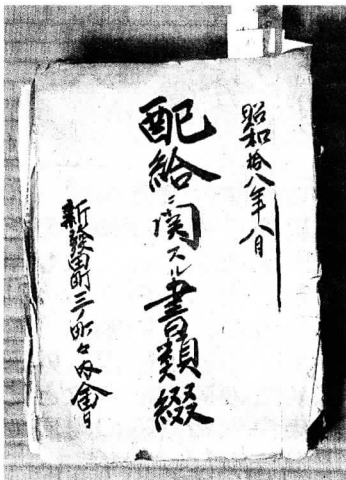 昭和拾八年八月
配給ニ関スル書類綴
新発田町三ノ町々内會